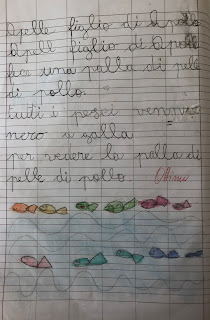 Apelle figlio di Apollo
Apelle figlio di Apollo
fece una palla di pelle
di pollo.
tutti i pesci vennero
a galla
per vedere la palla di
pelle di pollo